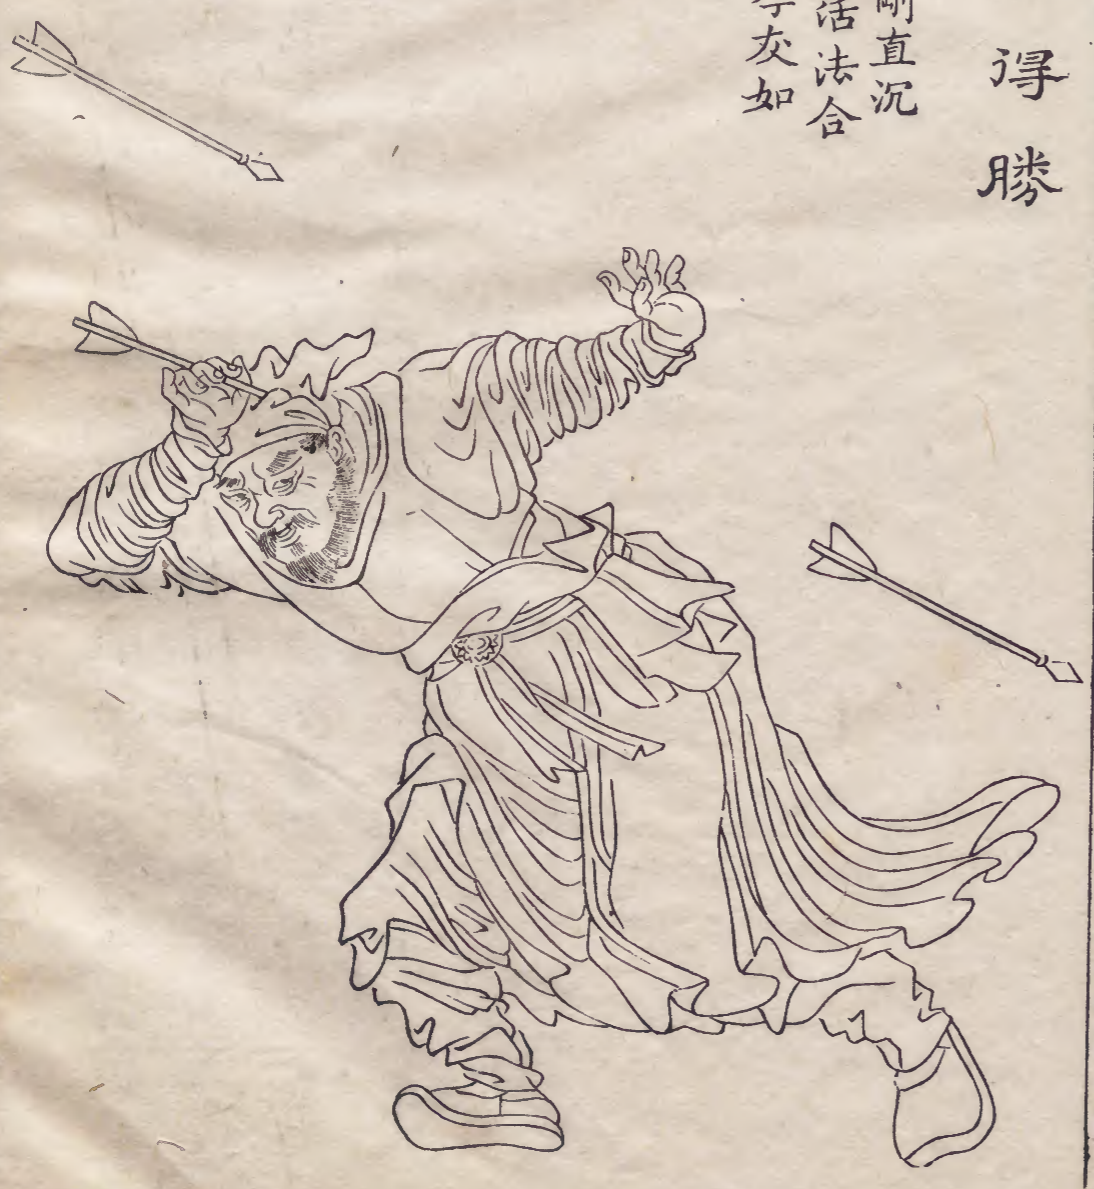 得勝
直沉
活法合
灰如